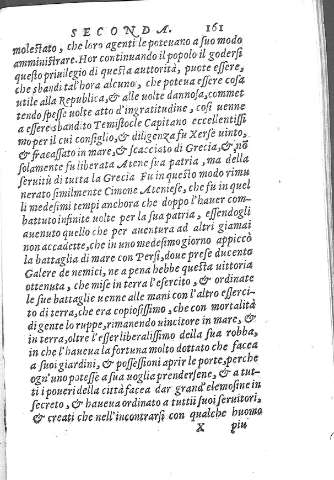 SECONDA. 161
molestato, che loro agenti le poteuano a suo modo
amministrare. Hor continuando il popolo il godersi
questo priuilegio di questa auttorità, puote essere,
che sbandì tal'hora alcuno, che poteua essere cosa
utile alla Republica, & alle uolte dannosa, commet
tendo spesse uolte atto d'ingratitudine, così uenne
a essere sbandito Temistocle Capitano eccellentissi
mo per il cui consiglio, & diligenza fu Xerse uinto,
& fracassato in mare, & scacciato di Grecia, & nō
solamente fu liberata Atene sua patria, ma della
seruitù di tutta la Grecia Fu in questo modo rimu
nerato similmente Cimone Ateniese, che fu in quel
li medesimi tempi anchora che doppo l'hauer com-
battuto infinite uolte per la sua patria, essendogli
auenuto quello che per auentura ad altri giamai
non accadette, che in uno medesimo giorno appiccò
la battaglia di mare con Persi, doue prese ducento
Galere de nemici, ne a pena hebbe questa uittoria
ottenuta, che mise in terra l'esercito, & ordinate
le sue battaglie uenne alle mani con l'altro esserci-
to di terra, che era copiosissimo, che con mortalità
di gente lo ruppe, rimanendo uincitore in mare, &
in terra, oltre l'esser liberalissimo della sua robba,
in che l'haueua la fortuna molto dottato che facea
a suoi giardini, & possessioni aprir le porte, perche
ogn'uno potesse a sua uoglia prendersene, & a tut-
ti i poueri della città facea dar grand'elemosine in
secreto, & haueua ordinato a tutti i suoi seruitori,
& creati che nell'incontrarsi con qualche huomo
X piu